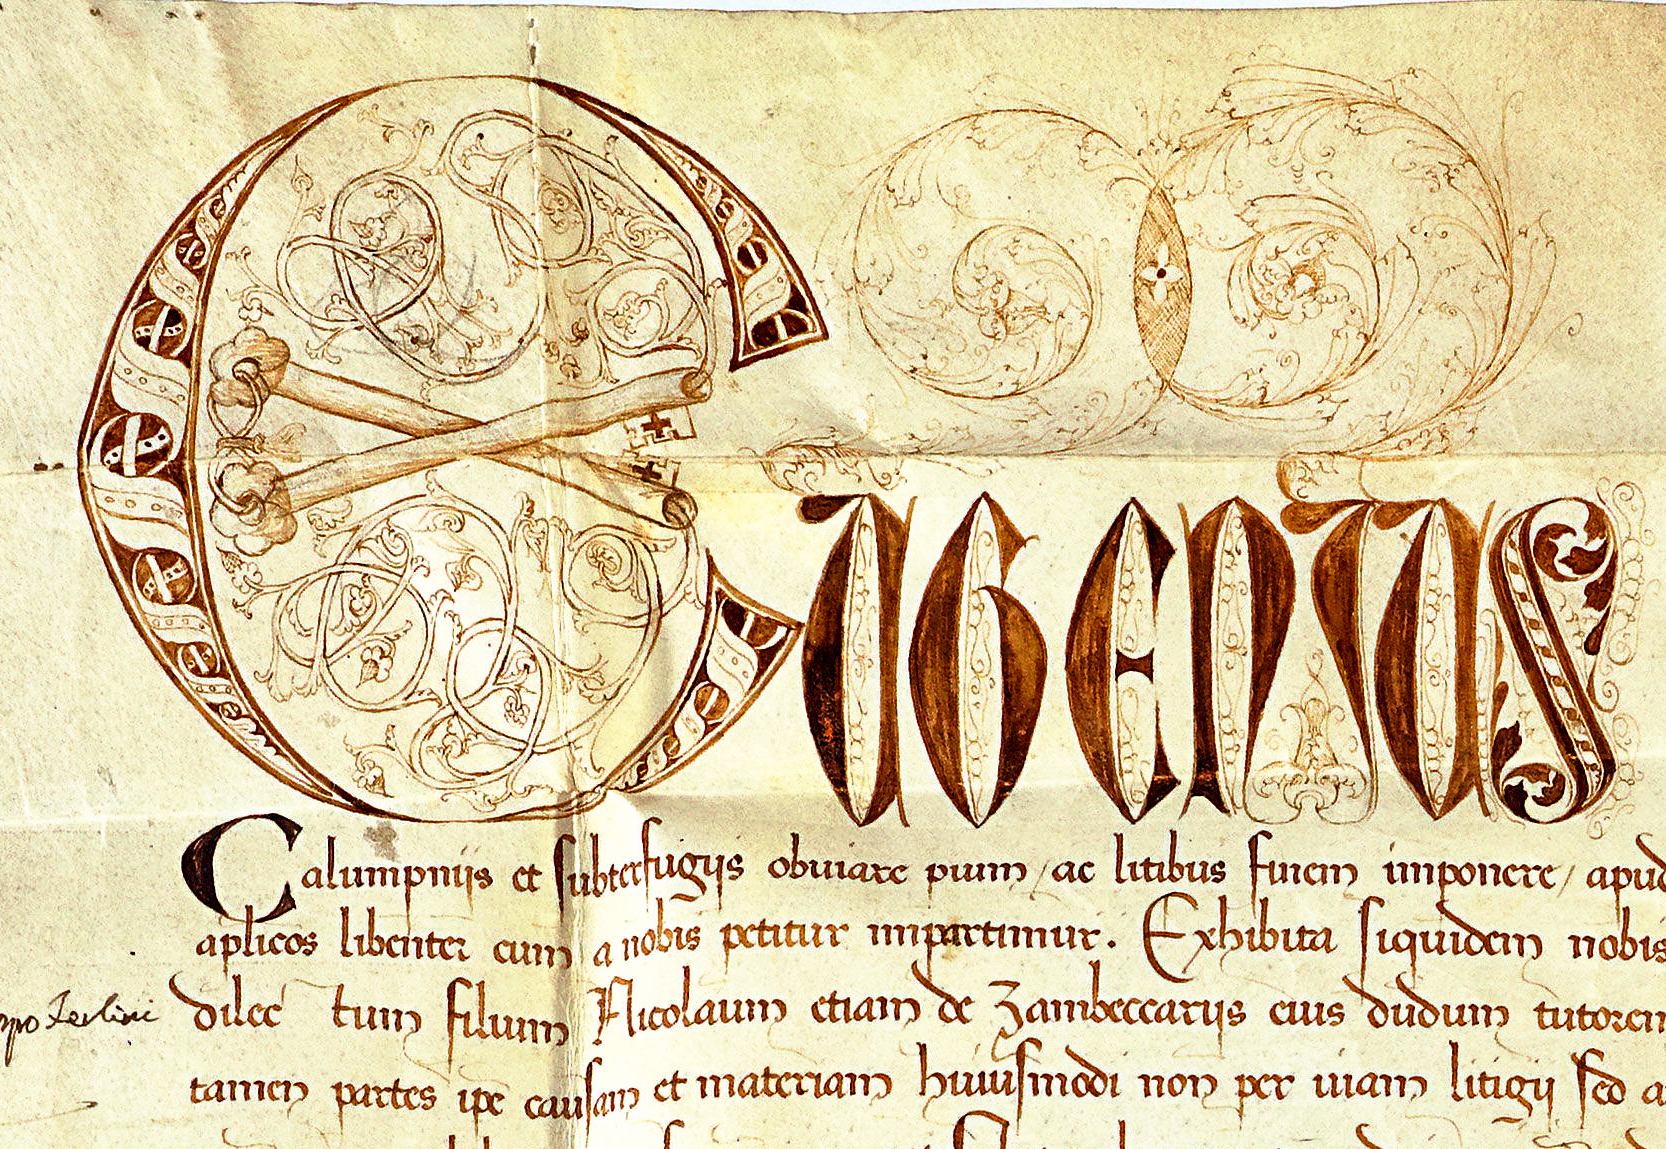 EUGENIUS
Calumpnijs et subterfugijs obuiare pium / ac litibus finem imponere / apud
aplicos libenter cum a nobis petitur impartimur. Exhibita siquidem nobis
dilec tum filium Nicolaum etiam de Zambeccarijs eius dudum tutorem
tamen partes ipe causam et materiam huiusmodi non per uiam litigij sed a